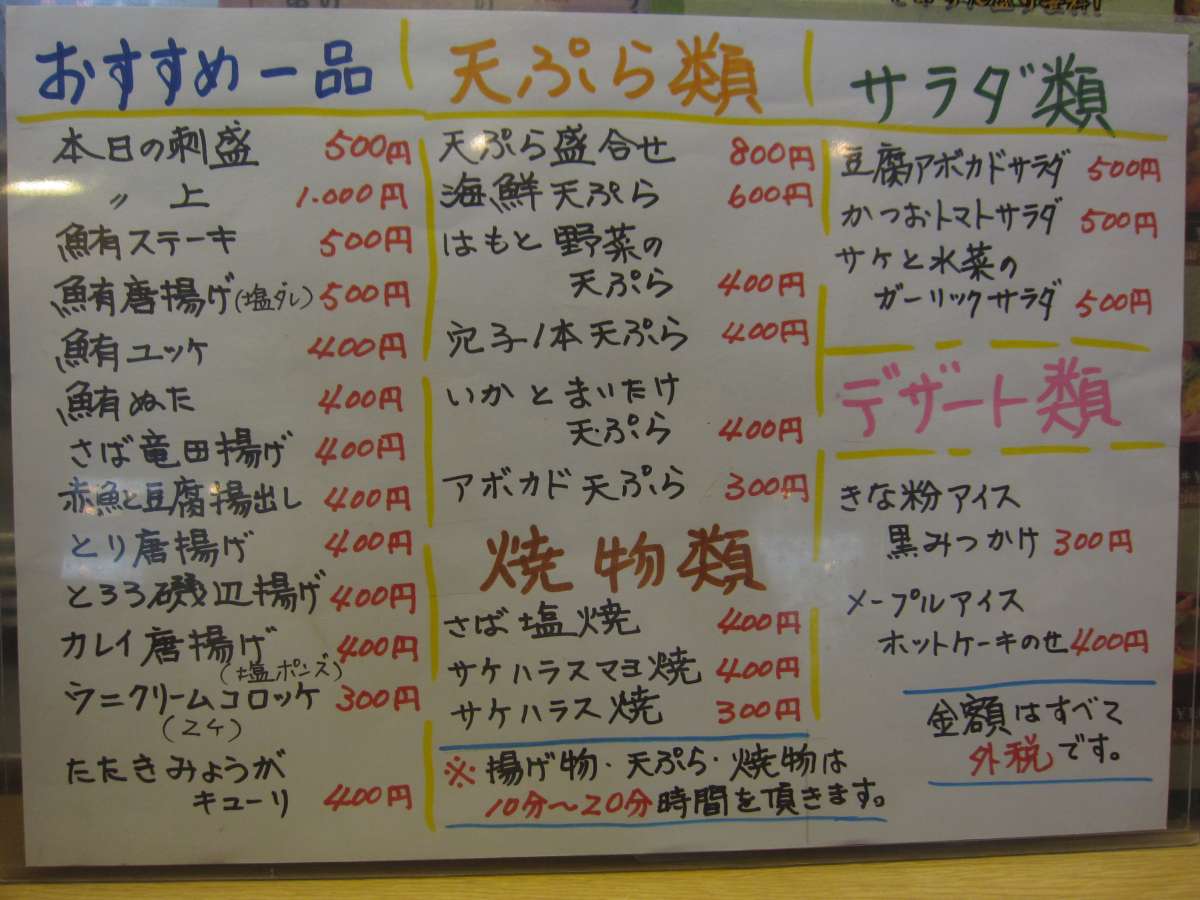 おすすめ一品
本日の刺盛 500円
〃 上 1.000円
鮪ステーキ 500円
鮪唐揚げ(塩ダレ) 500円
鮪ユッケ 400円
鮪ぬた 400円
さば竜田揚げ 400円
赤魚と豆腐揚出し 400円
とり唐揚げ 400円
とろろ磯辺揚げ 400円
カレイ唐揚げ 400円
(塩ポンズ)
ウニクリームコロッケ 300円
(2ケ)
たたきみょうが
キューリ 400円
天ぷら類
天ぷら盛合せ 800円
海鮮天ぷら 600円
はもと野菜の
天ぷら 400円
穴子1本天ぷら 400円
いかとまいたけ
天ぷら 400円
アボカド天ぷら 300円
焼物類
さば塩焼 400円
サケハラスマヨ焼 400円
サケハラス焼 300円
※揚げ物・天ぷら・焼物は
10分〜20分時間を頂きます。
サラダ類
豆腐アボカドサラダ 500円
かつおトマトサラダ 500円
サケと水菜の
ガーリックサラダ 500円
デザート類
きな粉アイス
黒みつかけ 300円
メープルアイス
ホットケーキのせ 400円
金額はすべて
外税です。